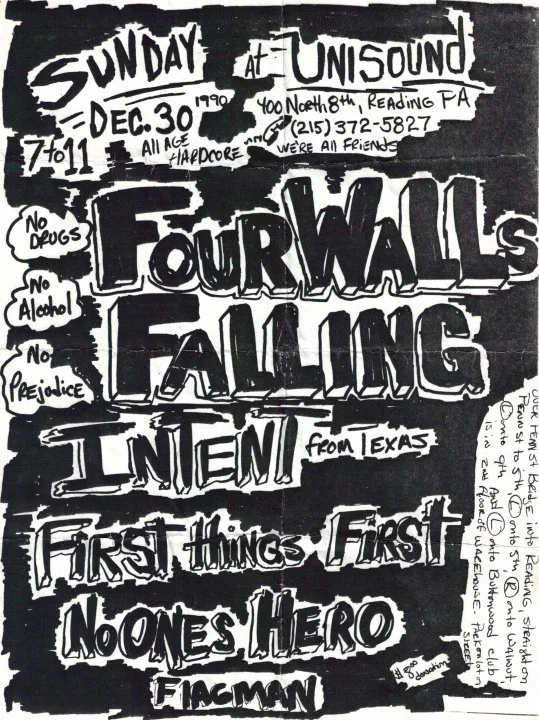 SUNDAY AT UNISOUND
DEC. 30 1990
400 North 8th, READING PA
(215) 372-5827
7 to 11
All AGE
HARDCORE
WE'RE All FRIENDS
No DRUGS
No Alcohol
No PREJUDICE
FOUR WALLS
FALLING
INTENT
from TEXAS
FIRST thingS FIRST
NoONES HERO
FlAGMAN
donation
OVER PENN ST BRIDGE into READING, STRAIGHT on
PENN ST to 5th, (L) onto 5th, (R) onto WALNUT,
(L) onto 9th And (L) onto Buttonwood club
is in 2nd floor of WAREHOUSE.
STREET